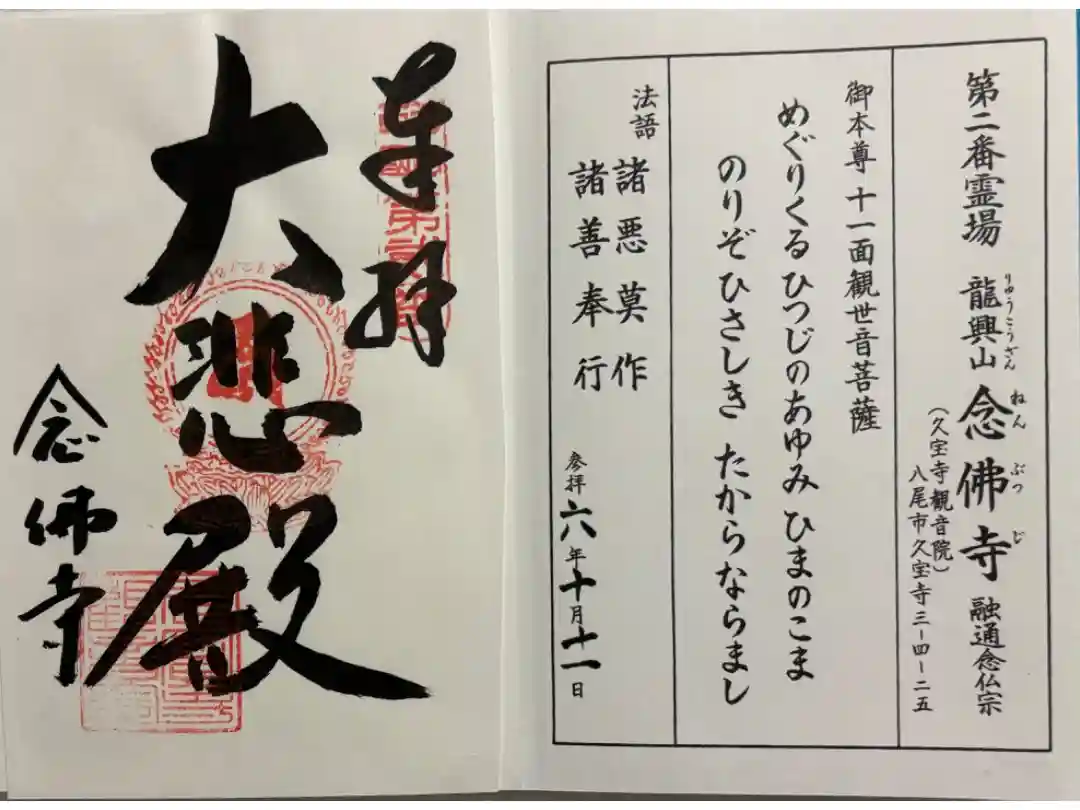 第二番霊場 龍興山 念佛寺 融通念仏宗
りゅうこうざん ねんぶつじ
(久宝寺観音院)
八尾市久宝寺三ー四ー二五
御本尊 十一面観世音菩薩
めぐりくる ひつじのあゆみ ひまのこま
のりぞ ひさしき たからならまし
法語
諸悪莫作
諸善奉行
参拝 六年十月十一日
奉拝
大悲殿
念佛寺